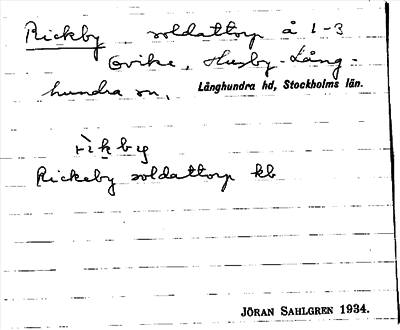 Rickby soldattorp å 1-3
Gvike, Husby-Lång-
hundra sn, Långhundra hd, Stockholms län.
rìkby
Rickeby soldattorp kb
JÖRAN SAHLGREN 1934.